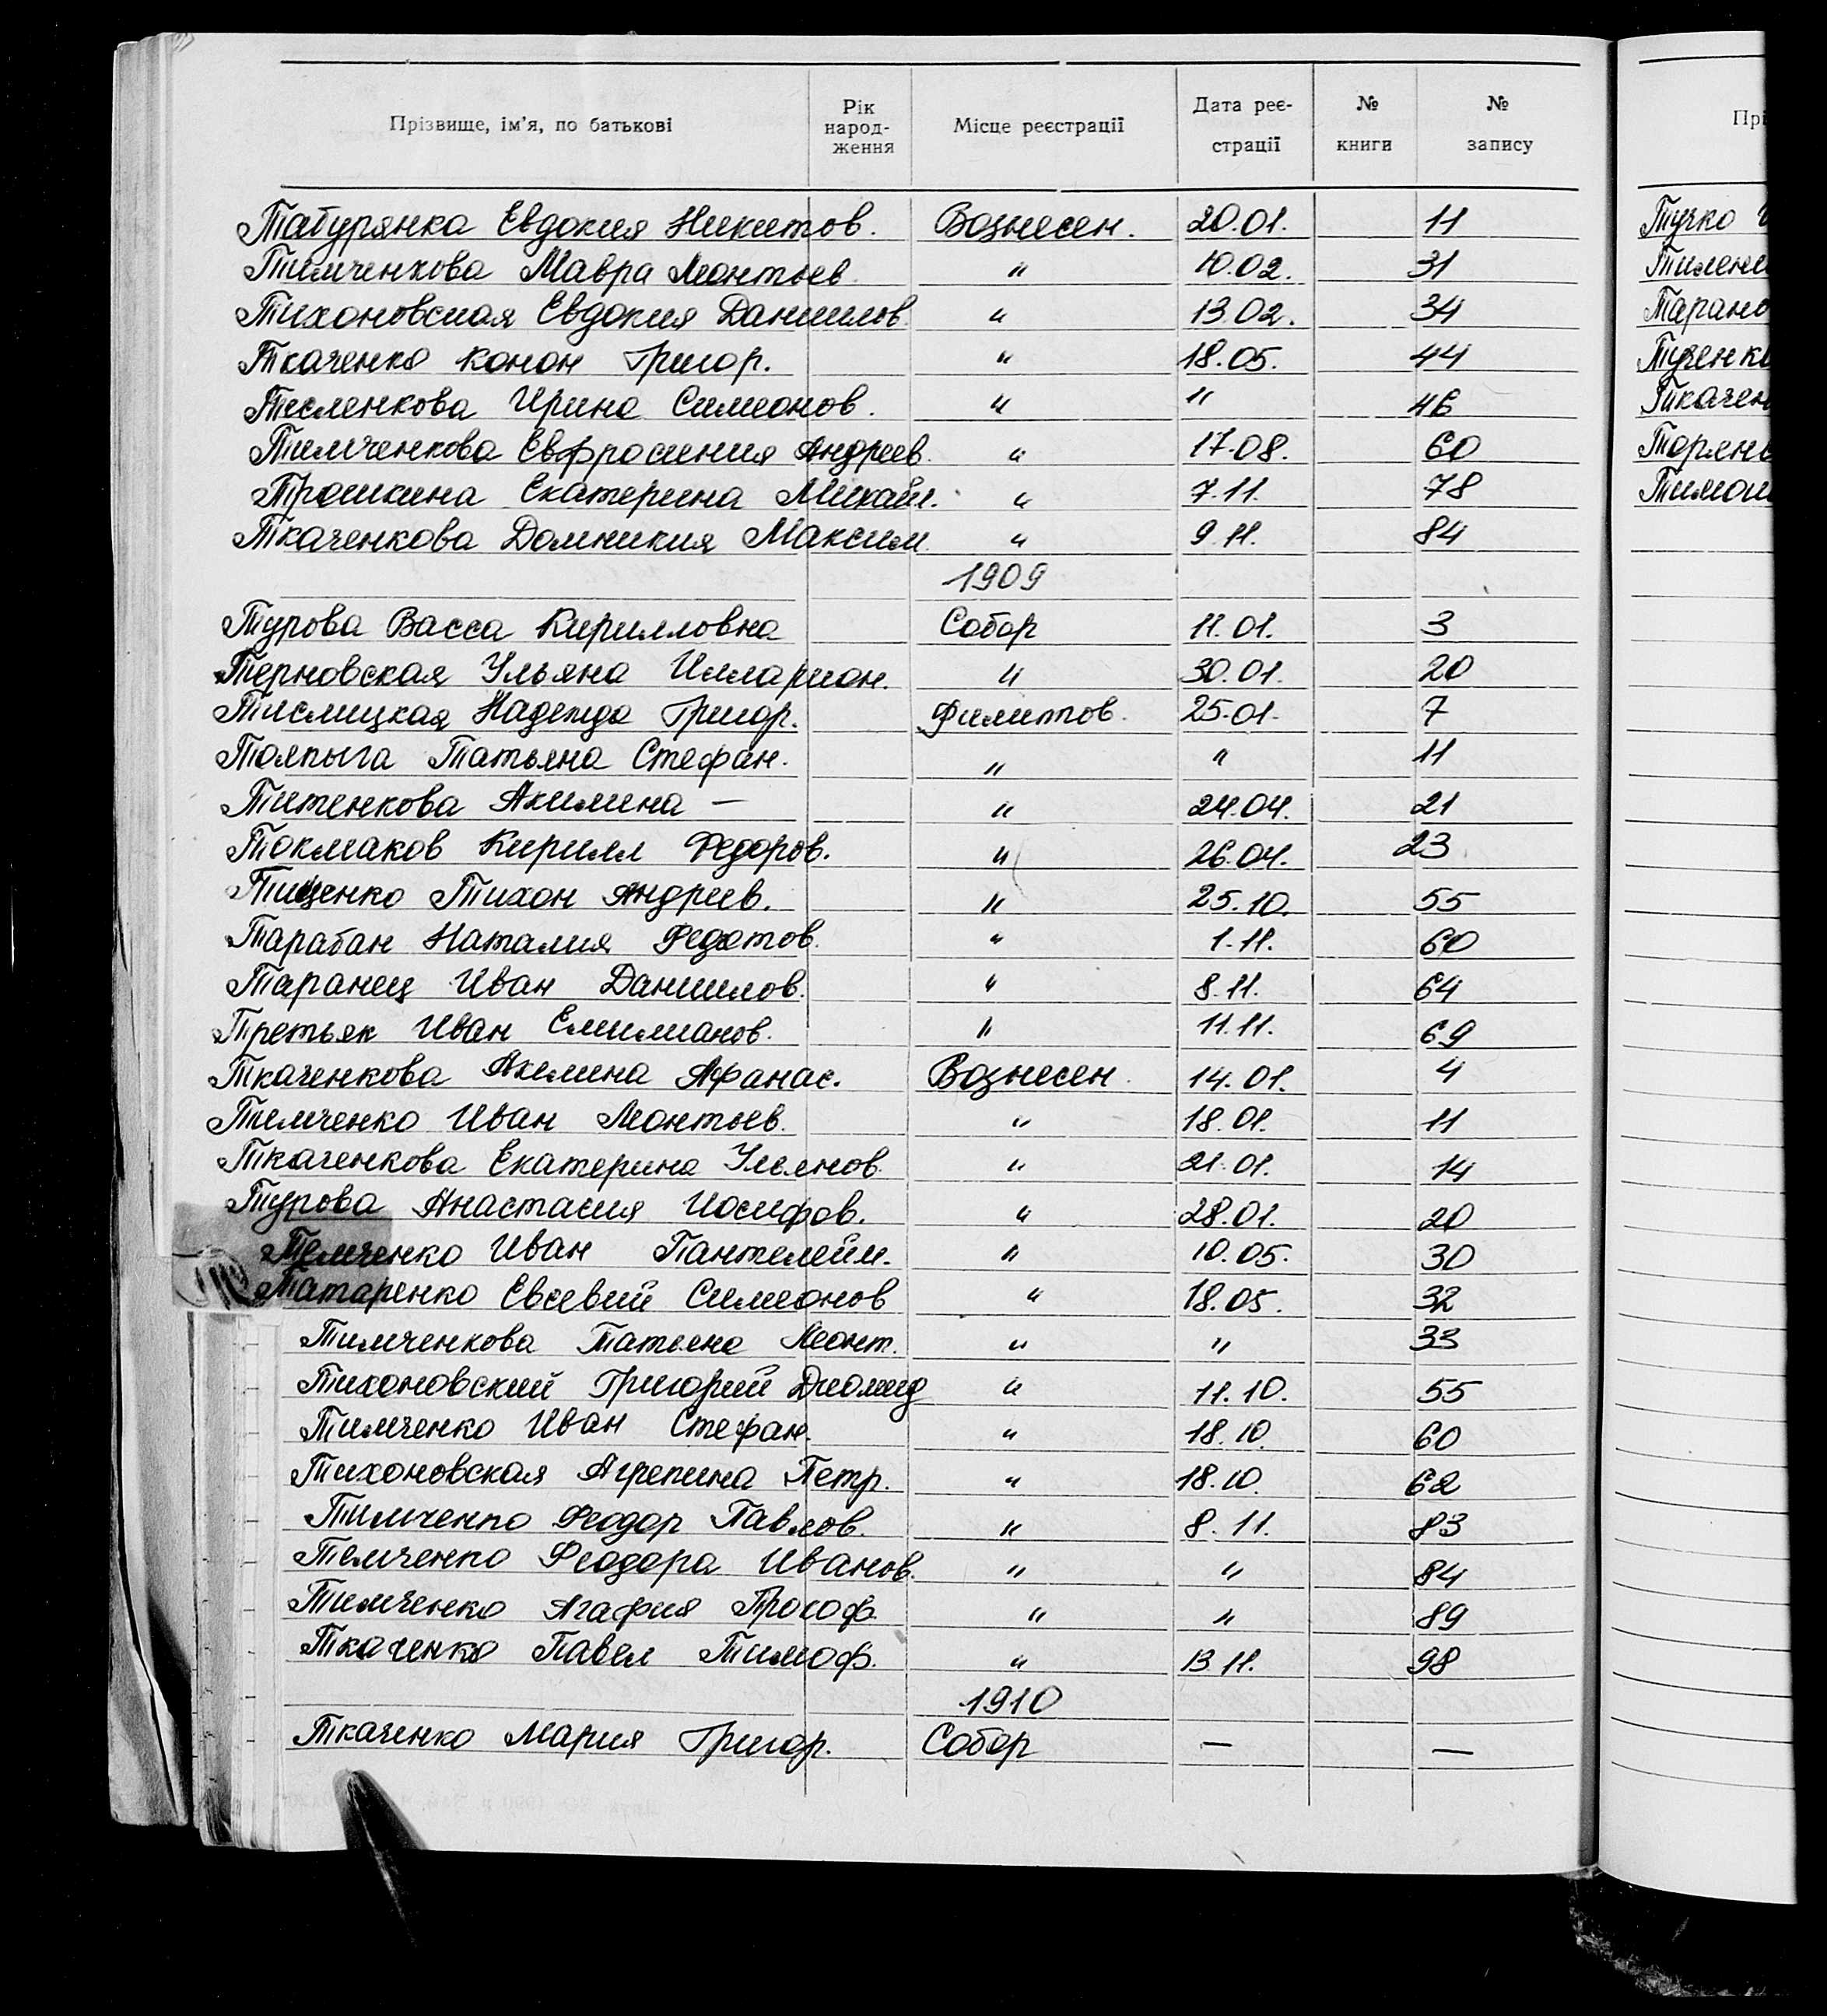 Прізвище, ім'я, по батькові Рік народ-ження Місце реєстрації Дата реє-страції № книги № запису
Табурянка Евдокия Никитов. Вознесен. 20.01. 11
Тимченкова Мавра Леонтьев. " 10.02. 31
Тихоновская Евдокия Даниилов. " 13.02. 34
Ткаченко Конон Григор. " 18.05. 44
Тесленкова Ирина Симеонов. " " 46
Тимченкова Евфросиния Андреев. " 17.08. 60
Трошкина Екатерина Михайл. " 7.11. 78
Ткаченкова Домникия Максим. " 9.11. 84
1909
Турова Васса Кирилловна Собор 11.01. 3
Терновская Ульяна Иллариан. " 30.01. 20
Тислицкая Надежда Григор. Филиппов. 25.01. 7
Толпыга Татьяна Стефан. " " 11
Титенкова Акилина — " 24.04. 21
Токмаков Кирилл Федоров. " 26.04. 23
Тищенко Тихон Андреев. " 25.10. 55
Тарабан Наталия Федотов. " 1.11. 60
Таранец Иван Даниилов. " 8.11. 64
Третьяк Иван Емилианов. " 11.11. 69
Ткаченкова Акелина Афанас. Вознесен. 14.01. 4
Темченко Иван Леонтьев. " 18.01. 11
Ткаченкова Екатерина Ульянов. " 21.01. 14
Турова Анастасия Иосифов. " 28.01. 20
Темченко Иван Пантелейм. " 10.05. 30
Татаренко Евсевий Симеонов " 18.05. 32
Тимченкова Татьяна Леонт. " " 33
Тихоновский Григорий Диомид " 11.10. 55
Тимченко Иван Стефан. " 18.10. 60
Тихоновская Агрепина Петр. " 18.10. 62
Тимченко Феодор Павлов. " 8.11. 83
Темченко Феодора Иванов. " " 84
Тимченко Агафия Прокоф. " " 89
Ткаченко Павел Тимоф. " 13.11. 98
1910
Ткаченко Мария Григор. Собор — —
Прі
Тучко
Таранo
Ткачен